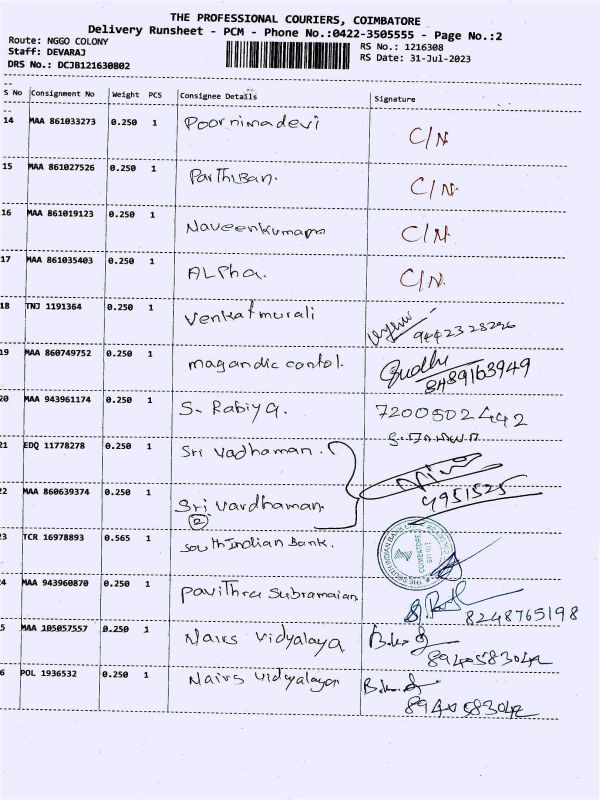 THE PROFESSIONAL COURIERS, COIMBATORE
Delivery Runsheet - PCM - Phone No.:0422-3505555 - Page No.:2
Route: NGGO COLONY RS No.: 1216308
Staff: DEVARAJ RS Date: 31-Jul-2023
DRS No.: DCJB121630802
S No Consignment No Weight PCS Consignee Details Signature
14 MAA 861033273 0.250 1 Poornimadevi C/N
15 MAA 861027526 0.250 1 Parthiban. C/N.
16 MAA 861019123 0.250 1 Naveenkumar C/N.
17 MAA 861035403 0.250 1 ALPha. C/N.
18 TNJ 1191364 0.250 1 Venkatmurali 9442328296
19 MAA 860749752 0.250 1 magandic contol.
20 MAA 943961174 0.250 1 S. Rabiya. 7200502442
21 EDQ 11778278 0.250 1 Sri vadhaman.
22 MAA 860639374 0.250 1 Sri vardhaman 4951525
2
23 TCR 16978893 0.565 1 South Indian Bank. THE SOUTH INDIAN BANK LTD COIMBATORE
24 MAA 943960870 0.250 1 Pavithra Subramaian 8248765198
5 MAA 105057557 0.250 1 Nairs Vidyalaya 8940583042
6 POL 1936532 0.250 1 Nairs Vidyalaya 8940583042